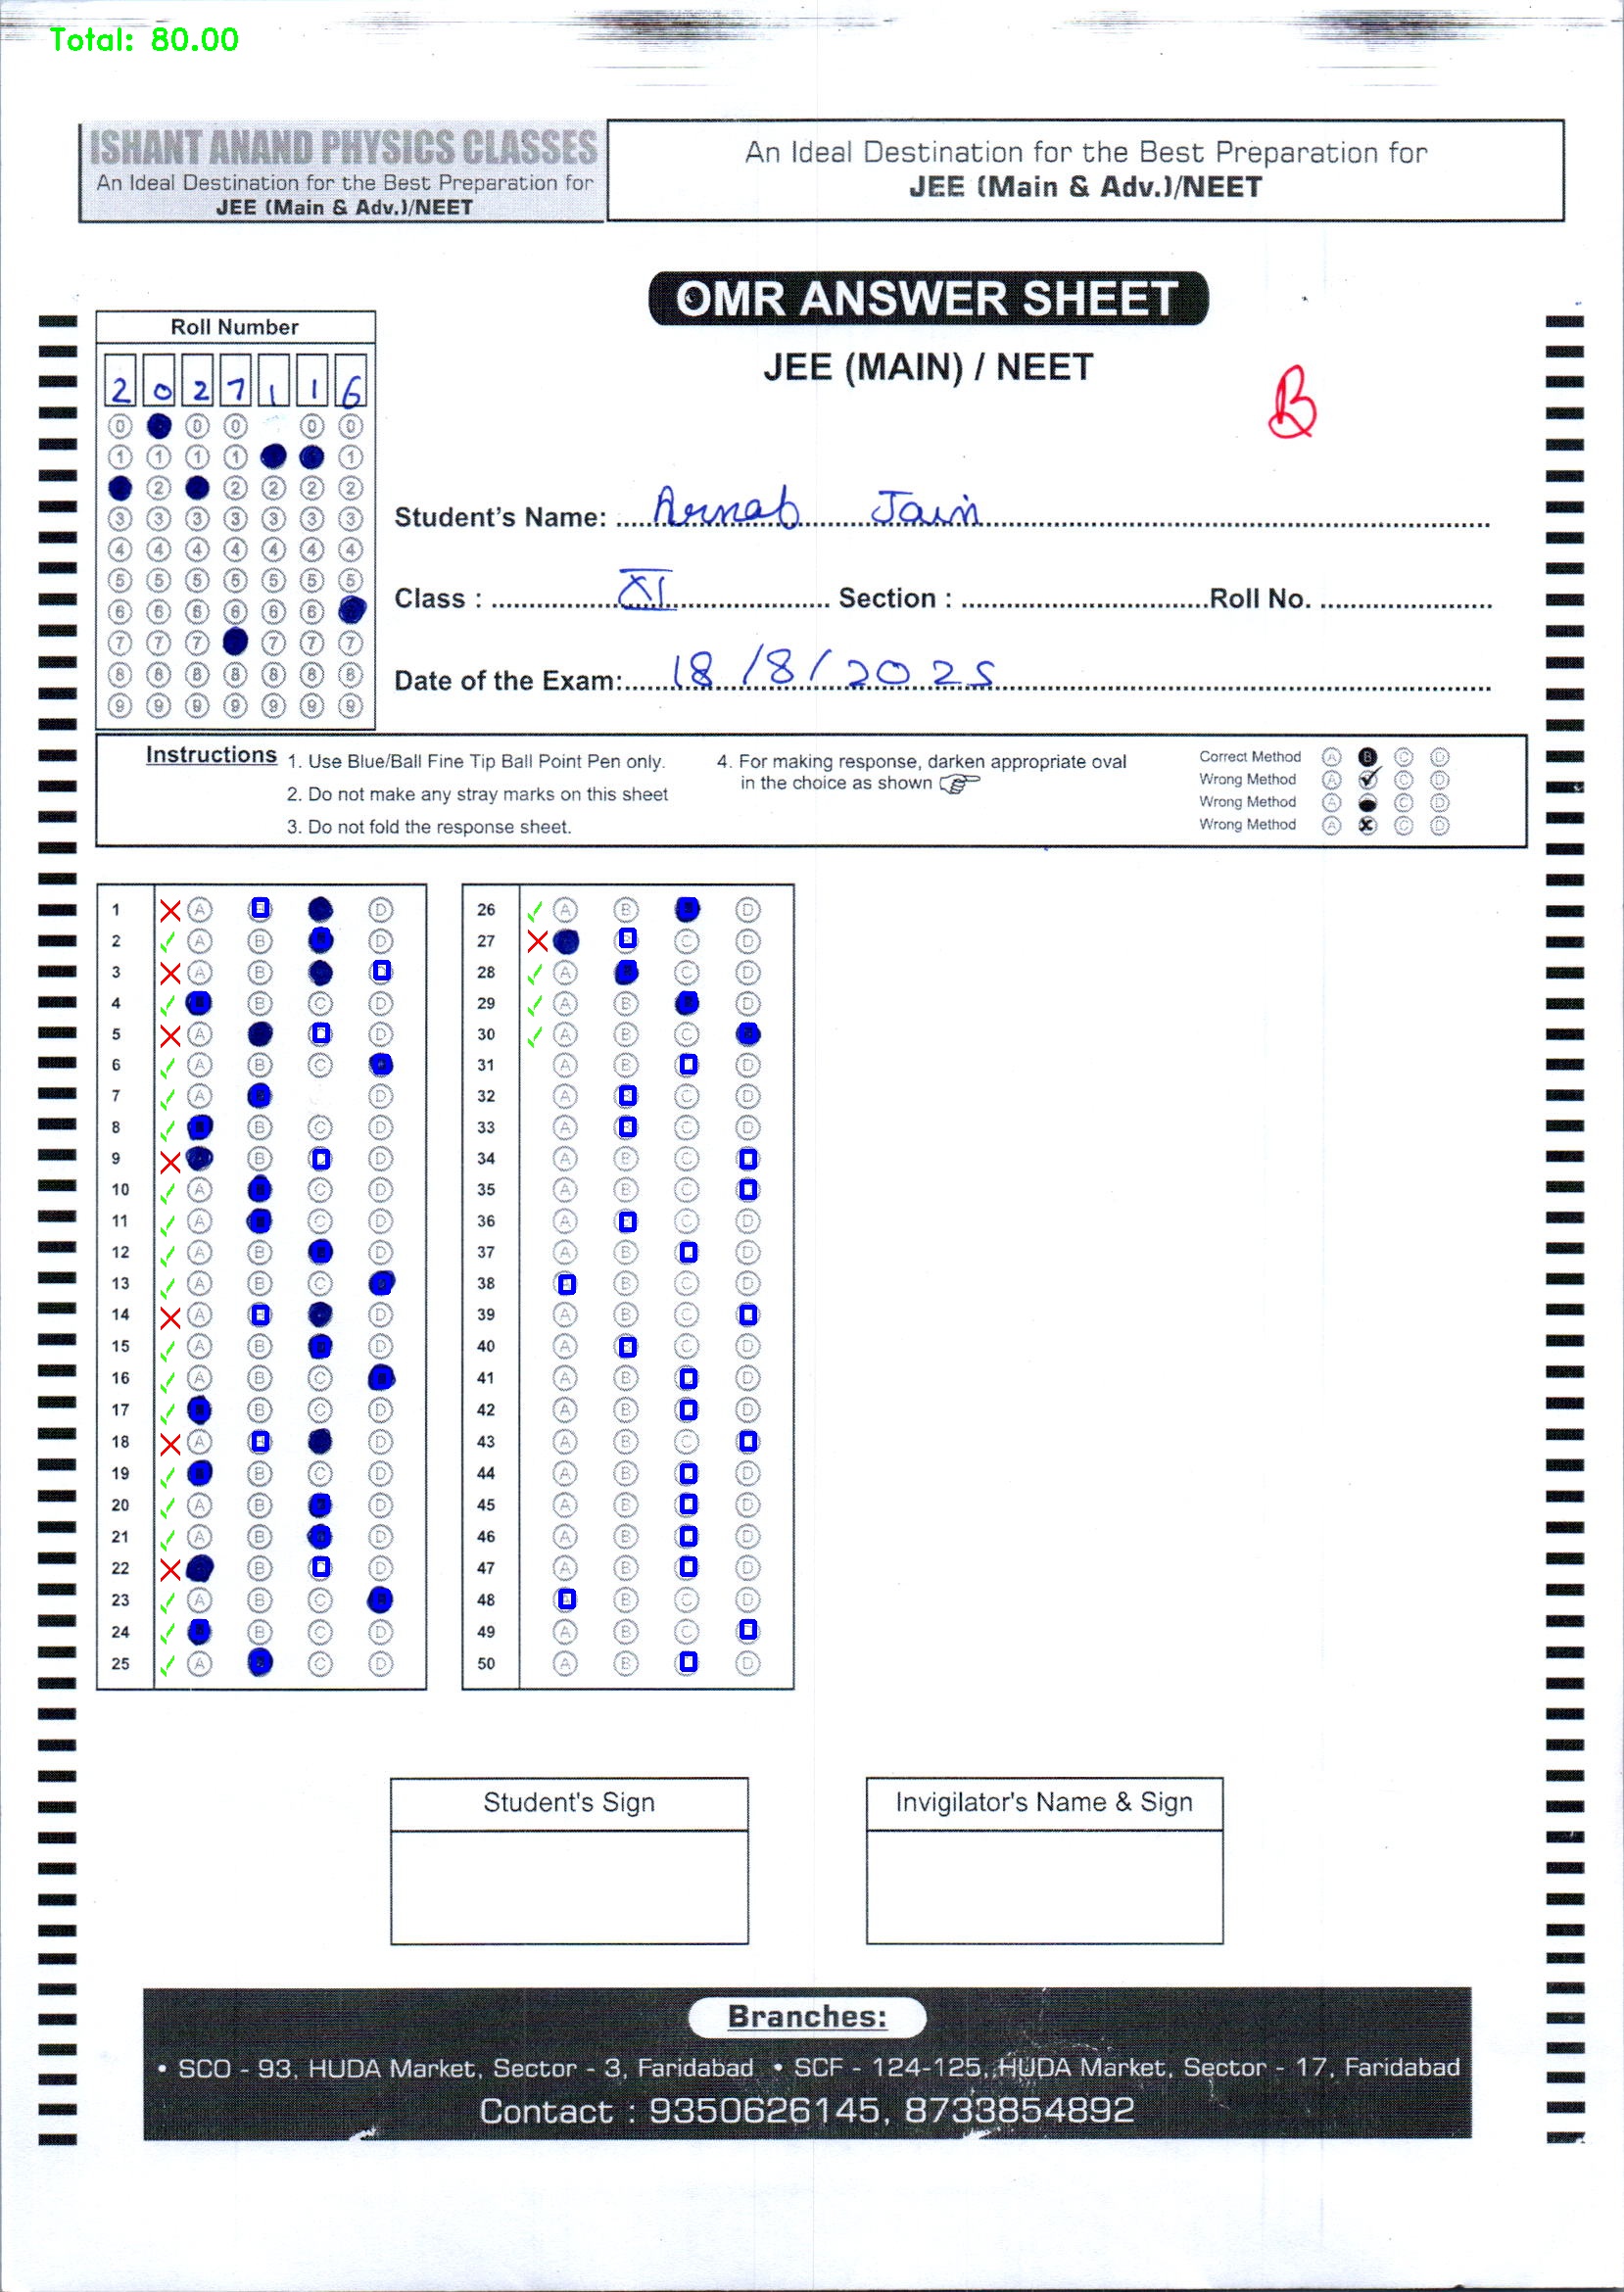 Total: 80.00
ISHANT ANAND PHYSICS CLASSES
An Ideal Destination for the Best Preparation for
JEE (Main & Adv.)/NEET
An Ideal Destination for the Best Preparation for
JEE (Main & Adv.)/NEET
OMR ANSWER SHEET
JEE (MAIN) / NEET
B
Roll Number
2 0 2 7 1 1 6
0 0 0 0 0
1 1 1 1 1
2 2 2 2 2
3 3 3 3 3 3 3
4 4 4 4 4 4 4
5 5 5 5 5 5 5
6 6 6 6 6 6
7 7 7 7 7 7
8 8 8 8 8 8 8
9 9 9 9 9 9 9
Student's Name: Arnab Jain
Class : XI Section : Roll No.
Date of the Exam: 18/8/2025
Instructions 1. Use Blue/Ball Fine Tip Ball Point Pen only.
2. Do not make any stray marks on this sheet
3. Do not fold the response sheet.
4. For making response, darken appropriate oval
in the choice as shown
Correct Method A B C D
Wrong Method A C D
Wrong Method A C D
Wrong Method A C D
1 A D
2 A B D
3 A B
4 B C D
5 A D
6 A B C
7 A D
8 B C D
9 B D
10 A C D
11 A C D
12 A B D
13 A B C
14 A D
15 A B D
16 A B C
17 B C D
18 A D
19 B C D
20 A B D
21 A B D
22 B D
23 A B C
24 B C D
25 A C D
26 A B D
27 C D
28 A C D
29 A B D
30 A B C
31 A B D
32 A C D
33 A C D
34 A B C
35 A B C
36 A C D
37 A B D
38 B C D
39 A B C
40 A C D
41 A B D
42 A B D
43 A B C
44 A B D
45 A B D
46 A B D
47 A B D
48 B C D
49 A B C
50 A B D
Student's Sign
Invigilator's Name & Sign
Branches:
• SCO - 93, HUDA Market, Sector - 3, Faridabad • SCF - 124-125, HUDA Market, Sector - 17, Faridabad
Contact : 9350626145, 8733854892